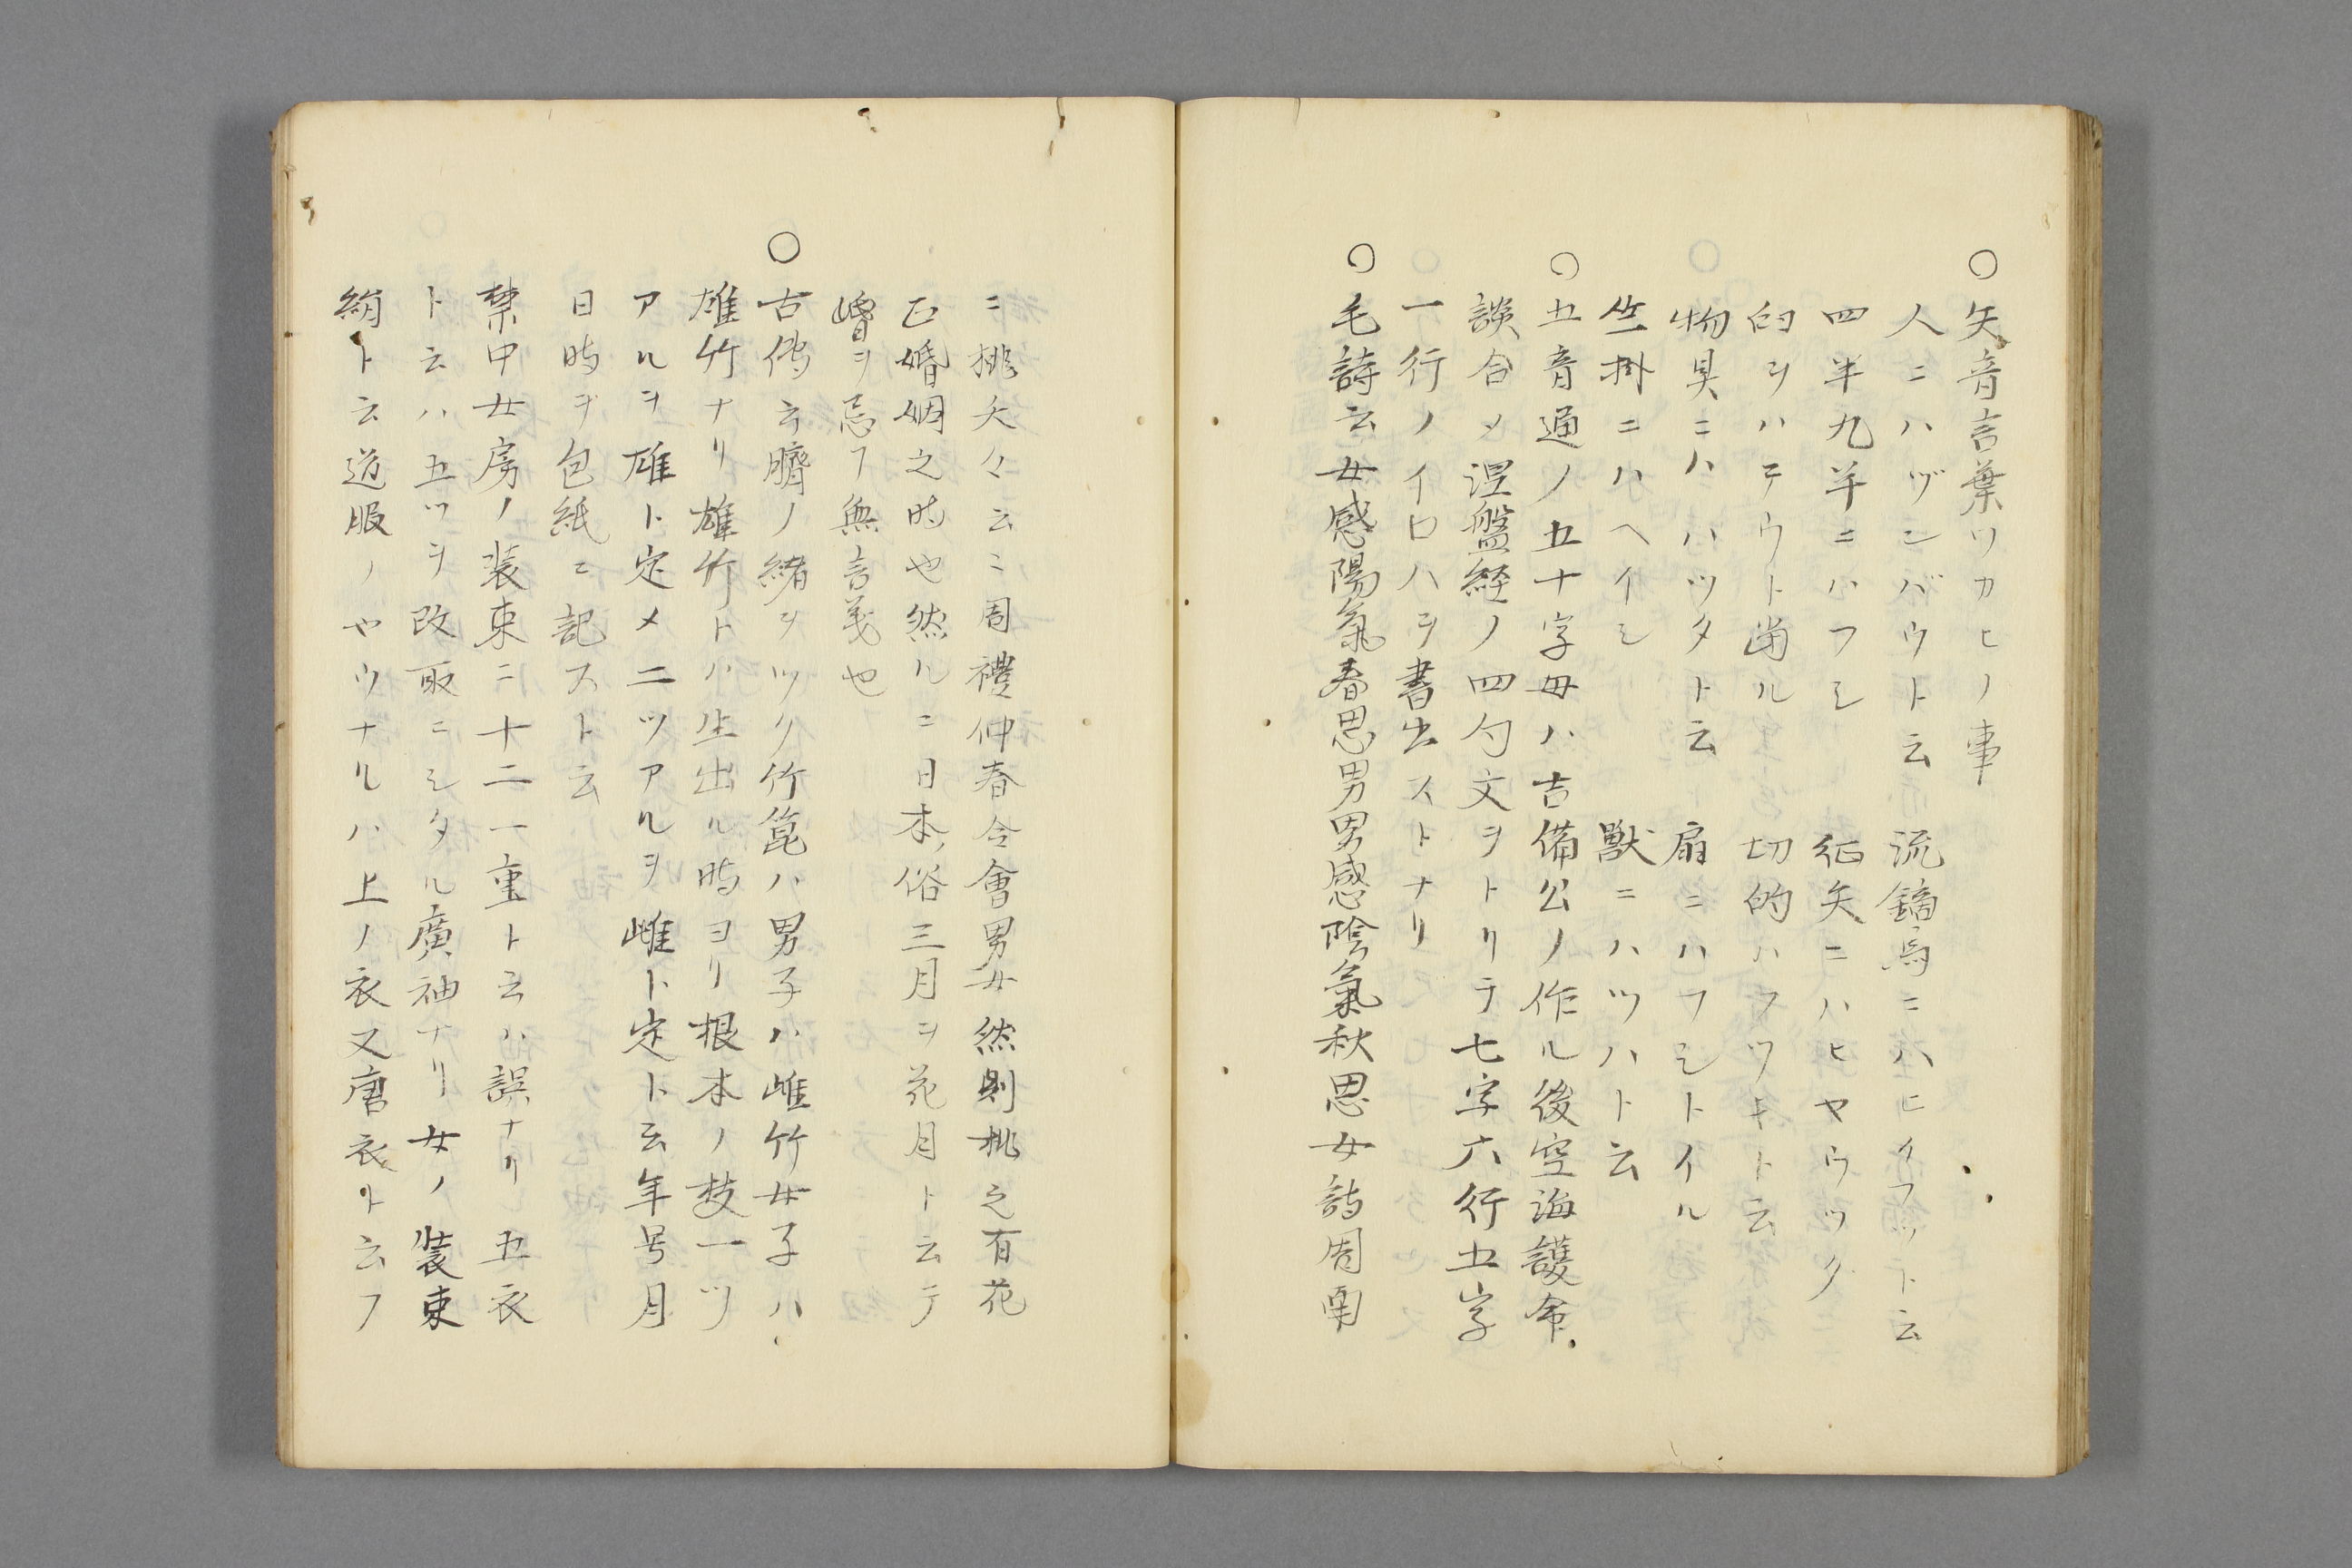 〇矢音言葉ツカヒノ事
人ニハヅンバウト云　流鏑馬ニハヒイフツト云
四半丸半ニハフシ　征矢ニハヒヤウツク
的ヲハテウト歯ル　切的ハフツキト云
物具ニハハツタト云　扇ニハフシトイル
竺掛ニハヘイシ　獣ニハツハト云
〇五音通ノ五十字母ハ吉備公ノ作ル後空海護命
談合メ涅盤経ノ四勺文ヲトリテ七字六行五字
一行ノイロハヲ書出ストナリ
〇毛詩云女感陽氣春思男男感陰氣秋思女詩周南
ニ桃夭々云ニ周禮仲春令會男女然則桃之有花
正婚姻之時也然ルニ日本俗三月ヲ花月ト云テ
婚ヲ忌フ無言義也
〇古傳云臍ノ緒ヲツリ竹箆ハ男子ハ雌竹女子ハ
雄竹ナリ雄竹トハ生出ル時ヨリ根本ノ枝一ツ
アルヲ雄ト定メ二ツアルヲ雌ト定ト云年号月
日時ヲ包紙ニ記スト云
禁中女房ノ装束ニ十二一重ト云ハ誤ナリ五衣
ト云ハ五ツヲ改取ニシタル廣袖ナリ女ノ装束
絹ト云道服ノヤウナルハ上ノ衣又唐衣ト云フ